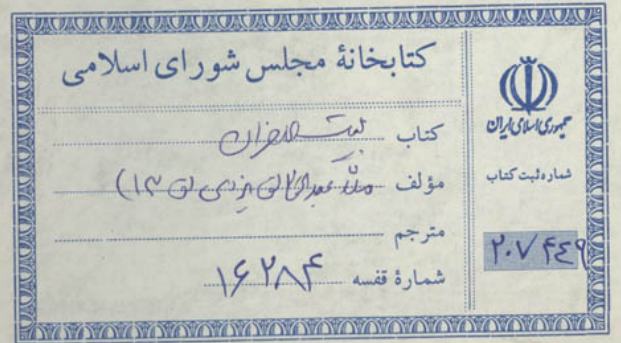 کتابخانهٔ مجلس شورای اسلامی
کتاب بیت الاحزان
مؤلف ملا عبدالخالق یزدی (ق ۱۳)
مترجم
شمارهٔ قفسه ۱۶۲۸۴
جمهوری اسلامی ایران
شماره ثبت کتاب
۲۰۷۴۴۹